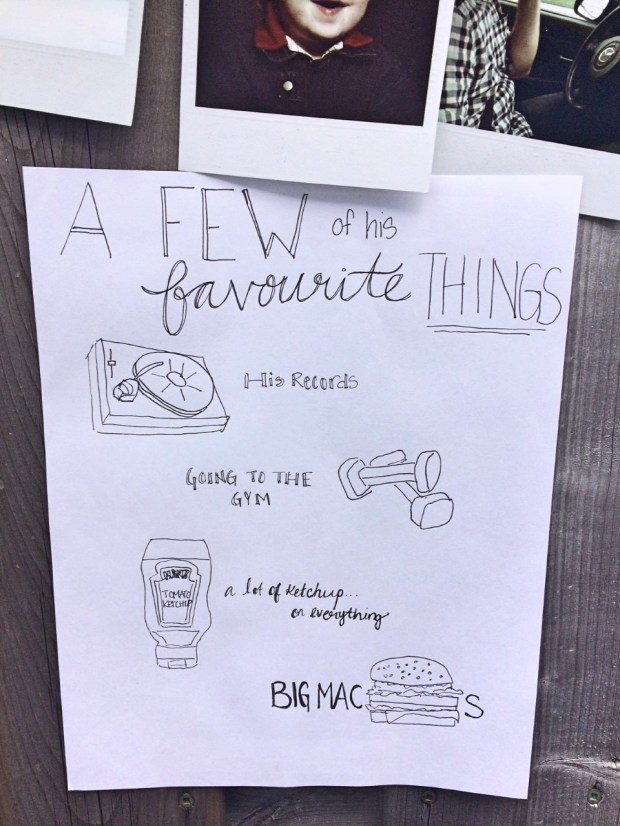 A FEW of his
favourite THINGS
His Records
GOING TO THE
GYM
TOMATO
KETCHUP
a lot of ketchup...
on everything
BIG MAC S